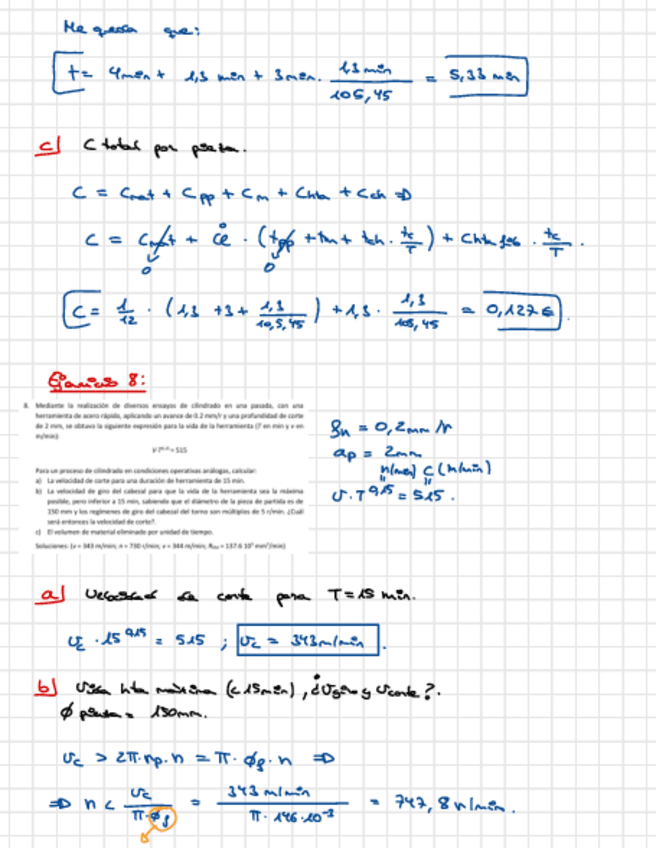 Me queda que:
t = 4 min + 1,3 min + 3 min. 1,3 min / 105,45 = 5,33 min
c) C total por pieza.
C = Cmat + Cpp + Cm + Chta + Cch ⇒
C = Cmat + Ċe · (tpp + tm + tch · tc/T) + Chta filo · tc/T .
0 0
C = 1/12 · (1,3 + 3 + 1,3/10,5,45) + 1,3 · 1,3/105,45 = 0,127€ .
Ejercicio 8:
8. Mediante la realización de diversos ensayos de cilindrado en una pasada, con una
herramienta de acero rápido, aplicando un avance de 0.2 mm/r y una profundidad de corte
de 2 mm, se obtuvo la siguiente expresión para la vida de la herramienta (T en min y v en
m/min):
V·T^0.15 = 515
Para un proceso de cilindrado en condiciones operativas análogas, calcular:
a) La velocidad de corte para una duración de herramienta de 15 min.
b) La velocidad de giro del cabezal para que la vida de la herramienta sea la máxima
posible, pero inferior a 15 min, sabiendo que el diámetro de la pieza de partida es de
150 mm y los regímenes de giro del cabezal del torno son múltiplos de 5 r/min. ¿Cuál
será entonces la velocidad de corte?.
c) El volumen de material eliminado por unidad de tiempo.
Soluciones: (v = 343 m/min; n = 730 r/min; v = 344 m/min; = 137.6 10³ mm³/min)
= 0,2 mm/r
ap = 2mm
n(men) C (m/min)
v · T^0,15 = 515 .
a) Velocidad de corte para T = 15 min.
vc · 15^0,15 = 515 ; vc = 343 m/min .
b) Vida hta máxima (< 15 min), ¿Vgiro y Vcorte?.
Ø pieza = 150mm.
vc > 2π·rp·n = π · Øf · n ⇒
⇒ n < vc / π·Øf = 343 m/min / π · 146 · 10^-3 = 747,8 r/min .